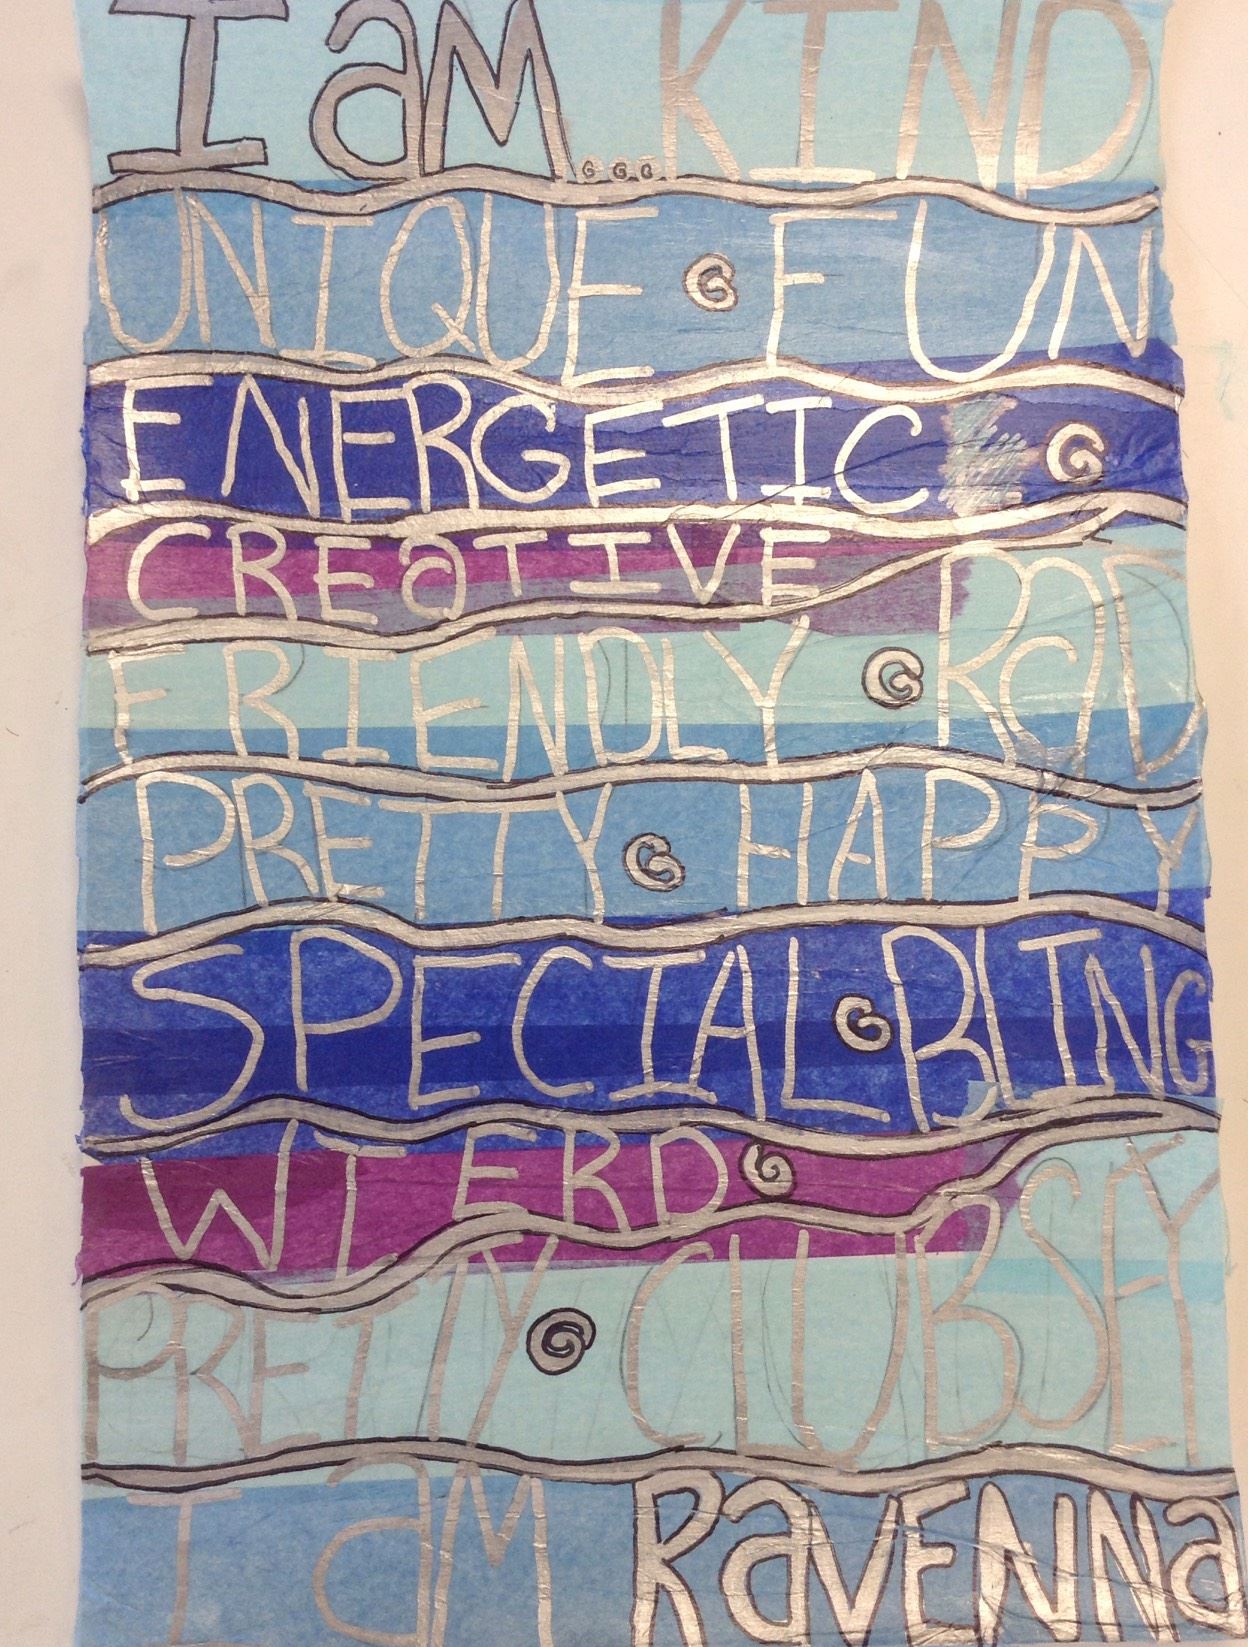 I am... KIND
UNIQUE FUN
ENERGETIC
CREaTIVE
FRIENDLY RaD
PRETTY HAPPY
SPECIAL BLING
WIERD
PRETTY CLUBSEY
I aM RaVENNa